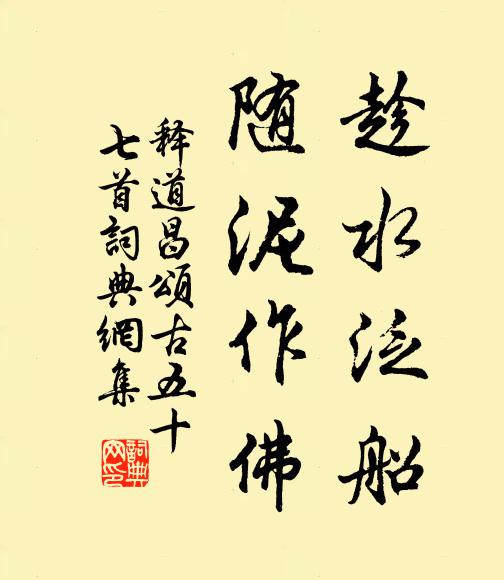 趁水泛船
随泥作佛
释道昌頌古五十
七首詞典網集
詞典
网印